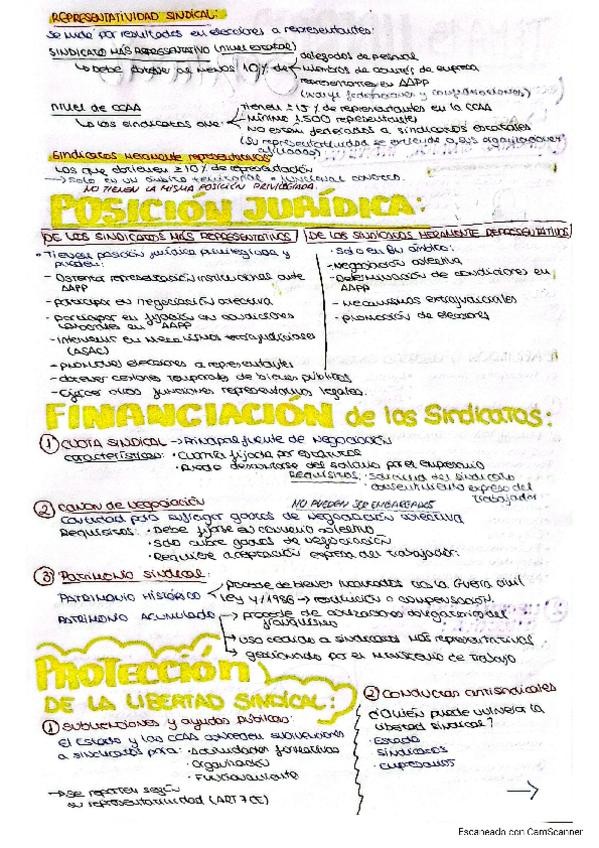 REPRESENTATIVIDAD SINDICAL:
Se mide por resultados en elecciones a representantes:
SINDICATO MÁS REPRESENTATIVO (nivel estatal)
↳ Debe obtener al menos 10% de
delegados de personal
miembros de comités de empresa
representantes en AAPP
(incluye federaciones y confederaciones)
NIVEL de CCAA
↳ los sindicatos que:
Tienen ≥ 15% de representantes en la CCAA
mínimo 1.500 representantes
NO estén federados a sindicatos estatales
(Su representatividad se extiende a sus organizaciones afiliadas)
Sindicatos meramente representativos
Los que obtienen ≥ 10% de representación
→ Solo en su ámbito territorial o funcional concreto.
NO TIENEN LA MISMA POSICIÓN PRIVILEGIADA.
POSICIÓN JURÍDICA:
DE LOS SINDICATOS MÁS REPRESENTATIVOS
• Tienen posición jurídica privilegiada y pueden:
- Ostentar representación institucional ante AAPP
- participar en negociación colectiva
- participar en fijación en condiciones laborales en AAPP
- Intervenir en mecanismos extrajudiciales (ASAC)
- promover elecciones a representantes
- obtener cesiones temporales de bienes públicos
- Ejercer otras funciones representativas legales.
DE LOS SINDICATOS MERAMENTE REPRESENTATIVOS
• Solo en su ámbito:
- Negociación colectiva
- Determinación de condiciones en AAPP
- Mecanismos extrajudiciales
- promoción de elecciones
FINANCIACIÓN de los Sindicatos:
① CUOTA SINDICAL → Principal fuente de negociación
Características: • Cuantía fijada por estatutos
• Puede descontarse del salario por el empresario
REQUISITOS: • Solicitud del sindicato
• consentimiento expreso del trabajador
NO PUEDEN SER EMBARGADOS
② canon de negociación
Cantidad para sufragar gastos de negociación colectiva
Requisitos: • Debe fijarse en convenio colectivo
• Solo cubre gastos de negociación
• Requiere aceptación expresa del trabajador.
③ Patrimonio sindical:
PATRIMONIO HISTÓRICO
procede de bienes incautados tras la Guerra civil
Ley 4/1986 → restitución o compensación.
PATRIMONIO ACUMULADO
→ procede de cotizaciones obligatorias del franquismo
→ uso cedido a sindicatos más representativos
→ gestionado por el Ministerio de Trabajo
PROTECCIÓN
DE LA LIBERTAD SINDICAL:
① subvenciones y ayudas públicas:
El Estado y las CCAA conceden subvenciones
a sindicatos para: • Actividades formativas
• Organización
• Funcionamiento
→ Se reparten según
su representatividad (ART 7 CE)
② conductas antisindicales
¿Quién puede vulnerar la libertad sindical?
• Estado
• Sindicatos
• Empresarios
→
Escaneado con CamScanner